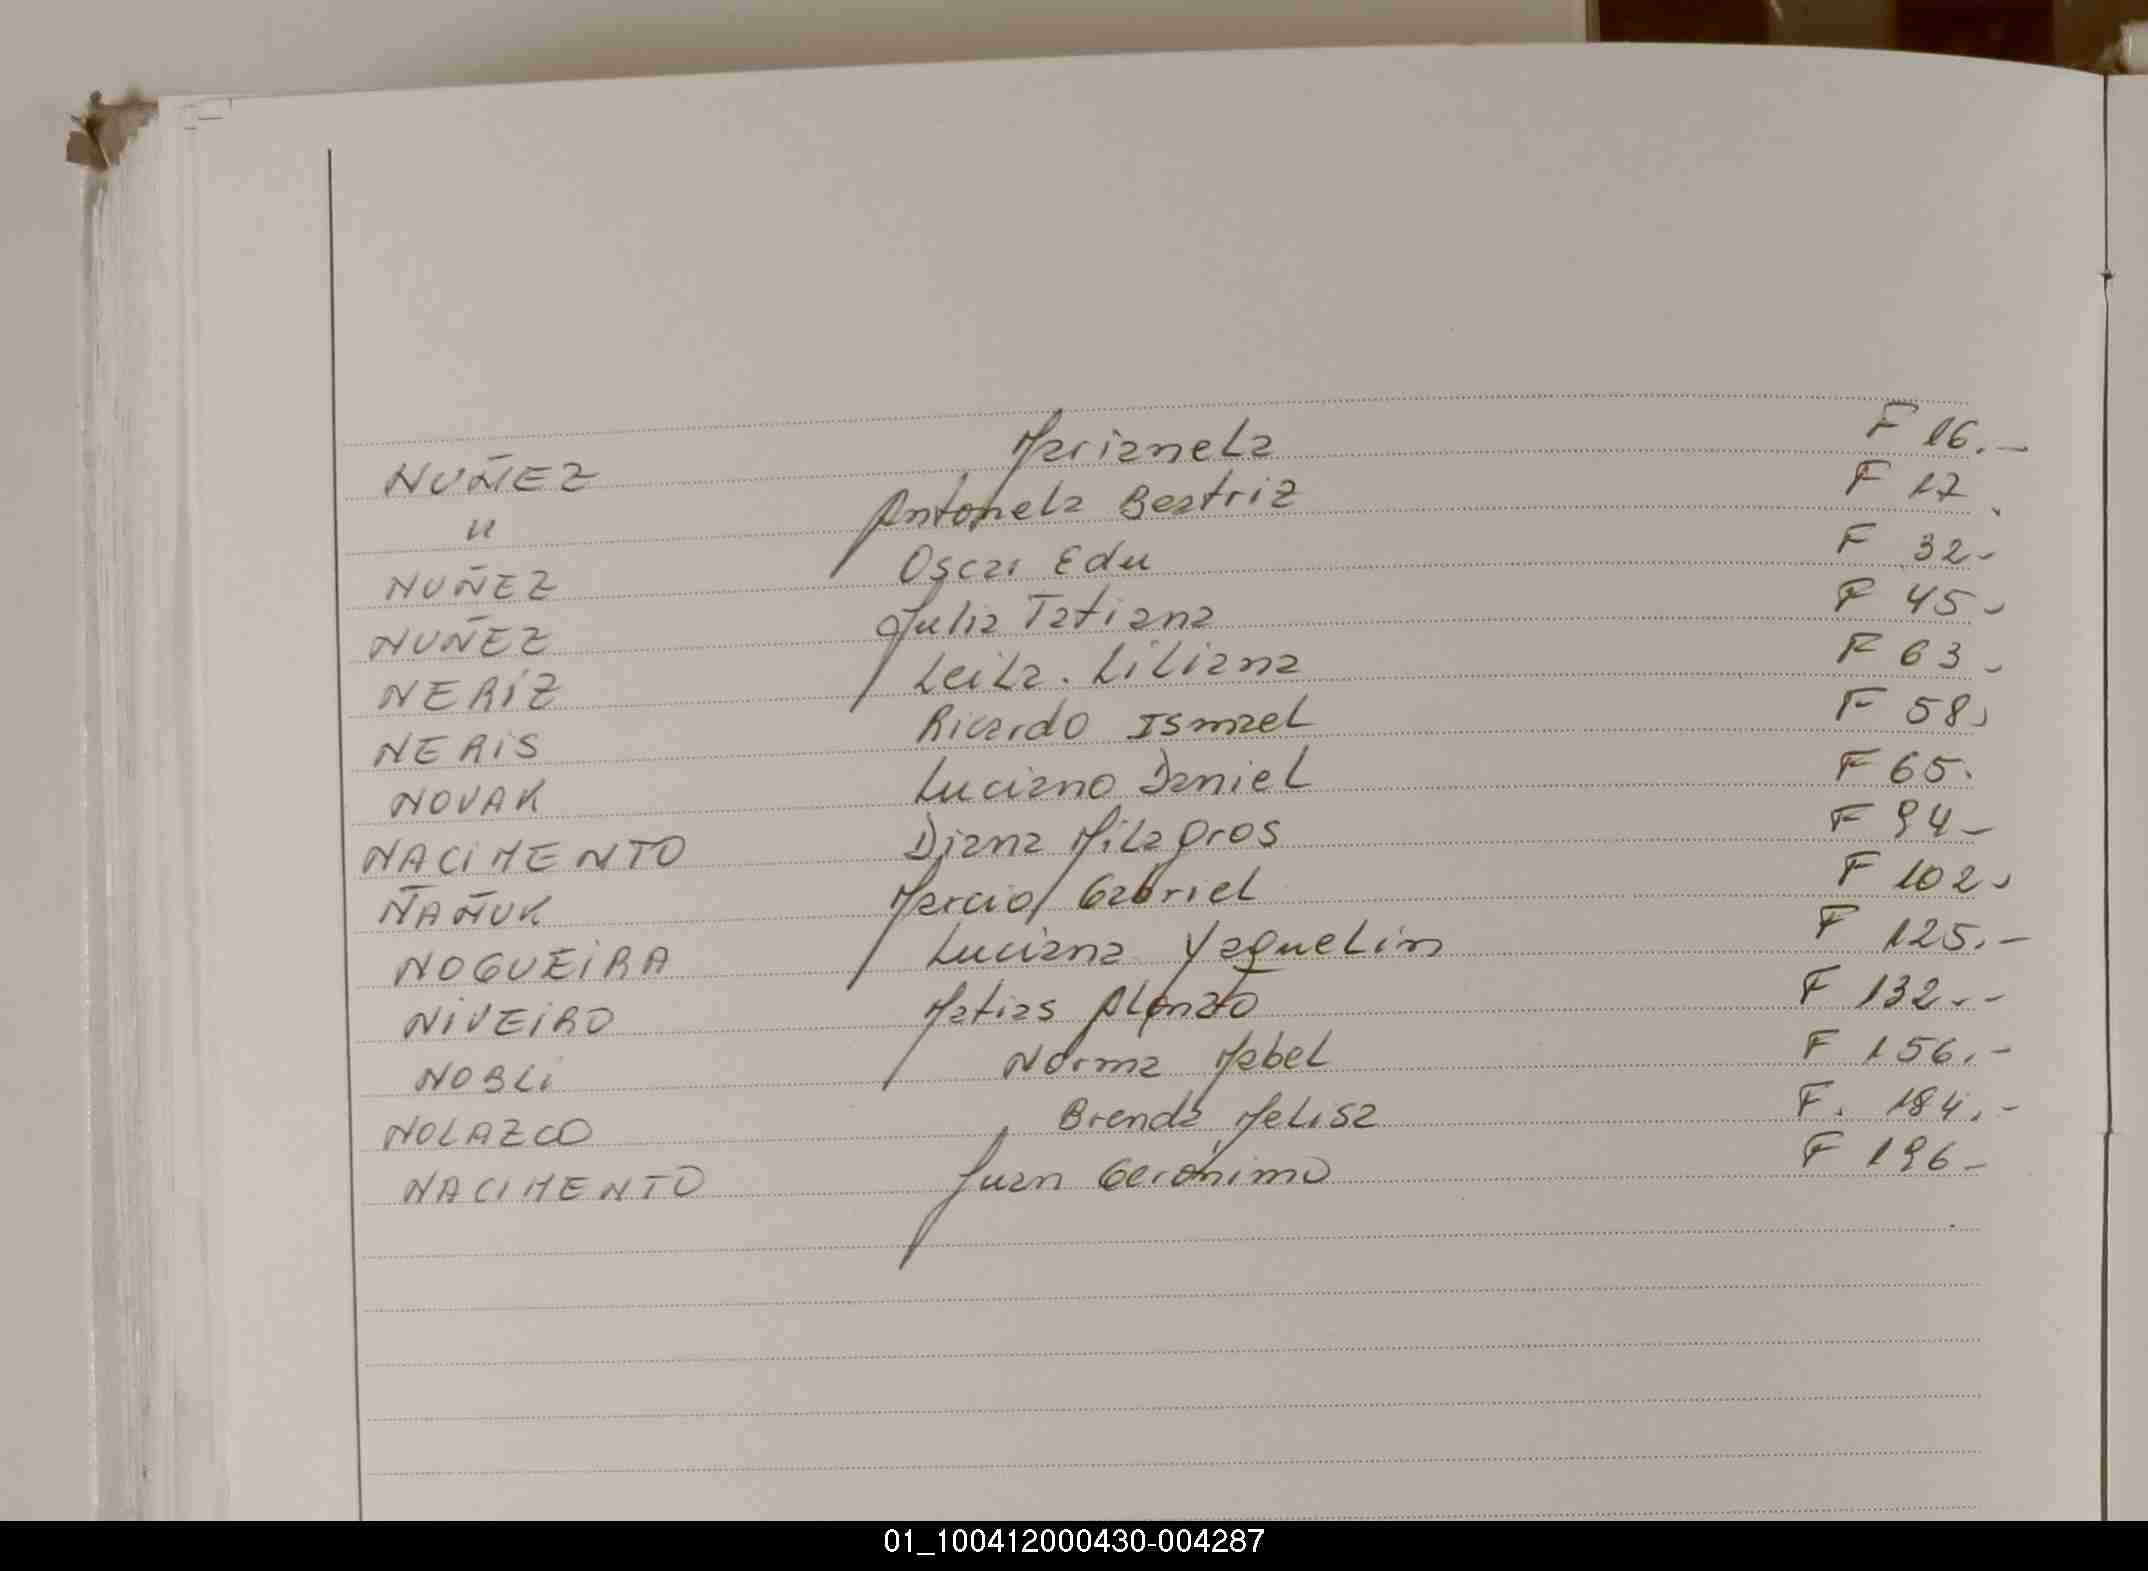 NUÑEZ Marianela F 16.-
" Antonela Beatriz F 17
NUÑEZ Oscar Edu F 32-
NUÑEZ Julia Tatiana F 45-
NERIZ Leila. Liliana F 63-
NERIS Ricardo Ismael F 58
NOVAK Luciano Daniel F 65.
NACIMENTO Diana Milagros F 94-
ÑAÑUK Marcio Gabriel F 102-
NOGUEIRA Luciana Yaquelin F 125.-
NIVEIRO Matias Alonzo F 132.-
NOBLI Norma Mabel F 156.-
NOLAZCO Brenda Melisa F. 184.-
NACIMENTO Juan Geronimo F 196-
01_100412000430-004287